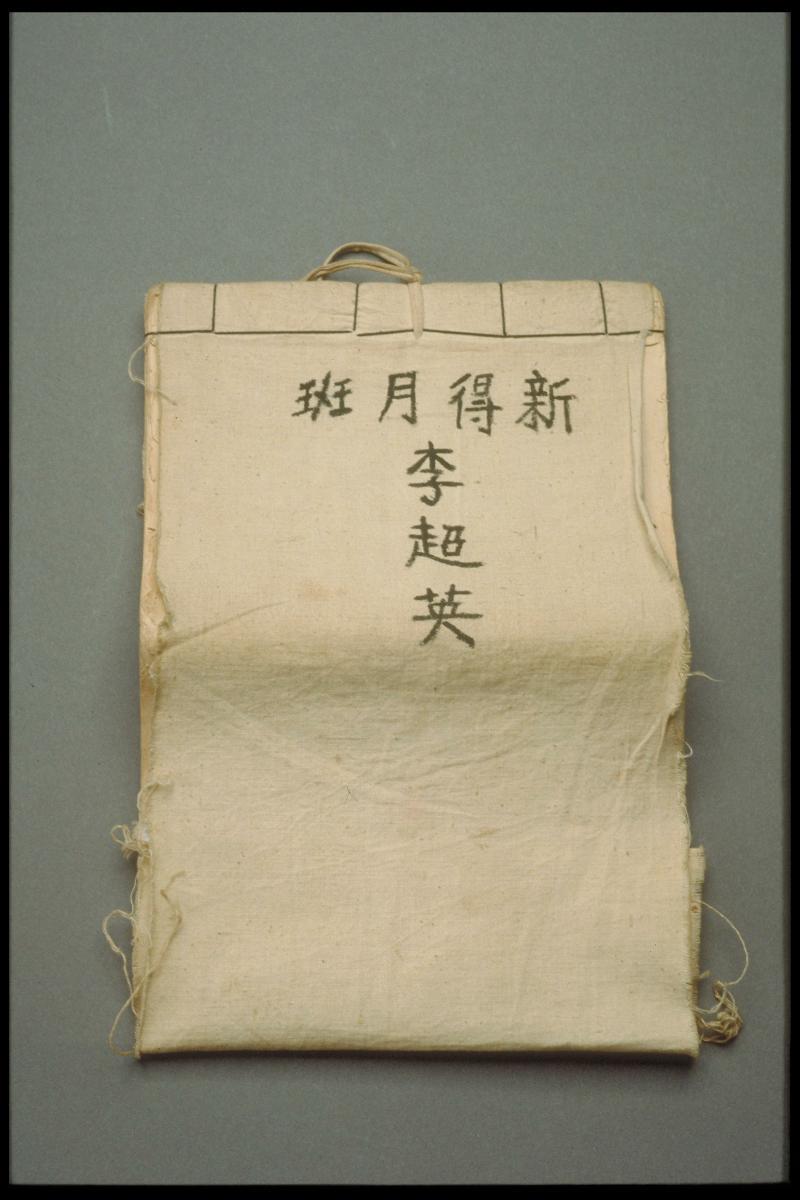 新得月班
李超英